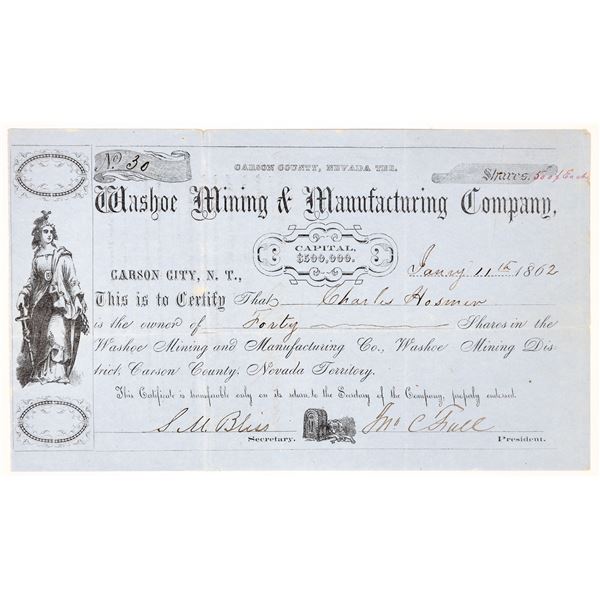 No. 30
CARSON COUNTY, NEVADA TER.
Shares, 500 $ Each
Washoe Mining & Manufacturing Company,
CAPITAL,
$500,000.
CARSON CITY, N. T., Jan'y 11th 1862
This is to Certify That Charles Hosmer
is the owner of Forty Shares in the
Washoe Mining and Manufacturing Co., Washoe Mining Dis-
trict, Carson County, Nevada Territory.
This Certificate is transferable only on its return to the Secretary of the Company, properly endorsed.
S. M. Bliss
Jno C Fall
Secretary.
President.